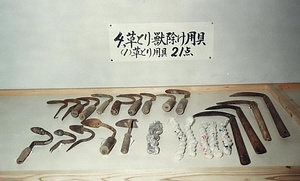 4.草とり・獣除け用具
(1)草とり用具 21点